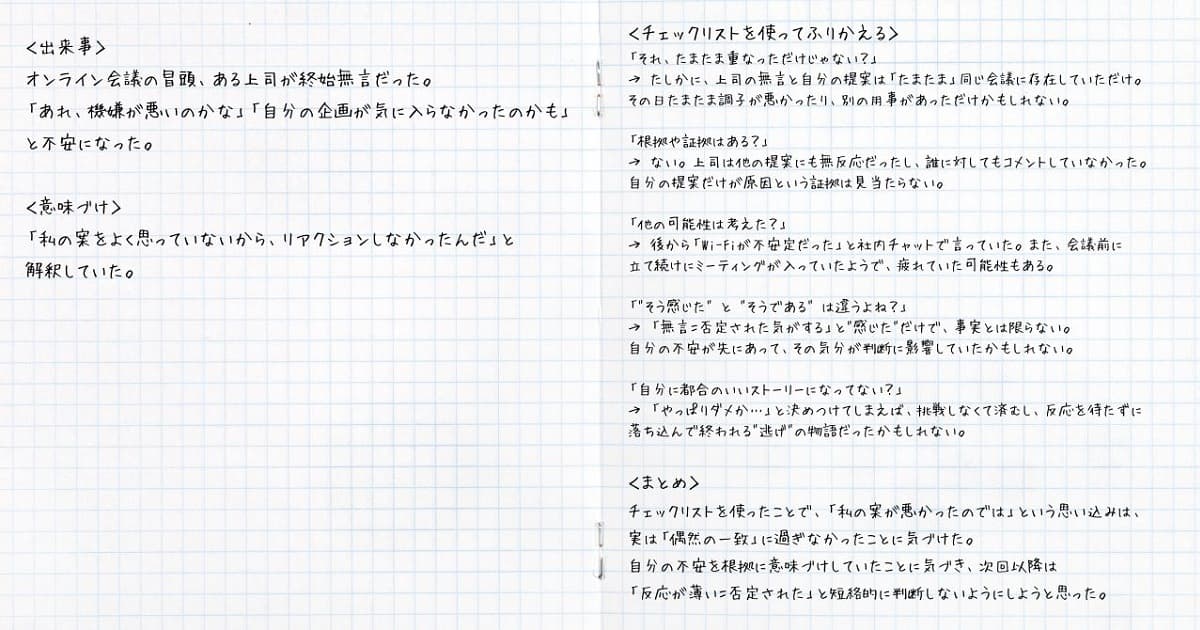 <出来事>
オンライン会議の冒頭、ある上司が終始無言だった。
「あれ、機嫌が悪いのかな」「自分の企画が気に入らなかったのかも」
と不安になった。
<意味づけ>
「私の案をよく思っていないから、リアクションしなかったんだ」と
解釈していた。
<チェックリストを使ってふりかえる>
「それ、たまたま重なっただけじゃない?」
→ たしかに、上司の無言と自分の提案は「たまたま」同じ会議に存在していただけ。
その日たまたま調子が悪かったり、別の用事があっただけかもしれない。
「根拠や証拠はある?」
→ ない。上司は他の提案にも無反応だったし、誰に対してもコメントしていなかった。
自分の提案だけが原因という証拠は見当たらない。
「他の可能性は考えた?」
→ 後から「Wi-Fiが不安定だった」と社内チャットで言っていた。また、会議前に
立て続けにミーティングが入っていたようで、疲れていた可能性もある。
「"そう感じた" と "そうである" は違うよね?」
→ 「無言=否定された気がする」と"感じた"だけで、事実とは限らない。
自分の不安が先にあって、その気分が判断に影響していたかもしれない。
「自分に都合のいいストーリーになってない?」
→ 「やっぱりダメか…」と決めつけてしまえば、挑戦しなくて済むし、反応を待たずに
落ち込んで終われる"逃げ"の物語だったかもしれない。
<まとめ>
チェックリストを使ったことで、「私の案が悪かったのでは」という思い込みは、
実は「偶然の一致」に過ぎなかったことに気づけた。
自分の不安を根拠に意味づけしていたことに気づき、次回以降は
「反応が薄い=否定された」と短絡的に判断しないようにしようと思った。